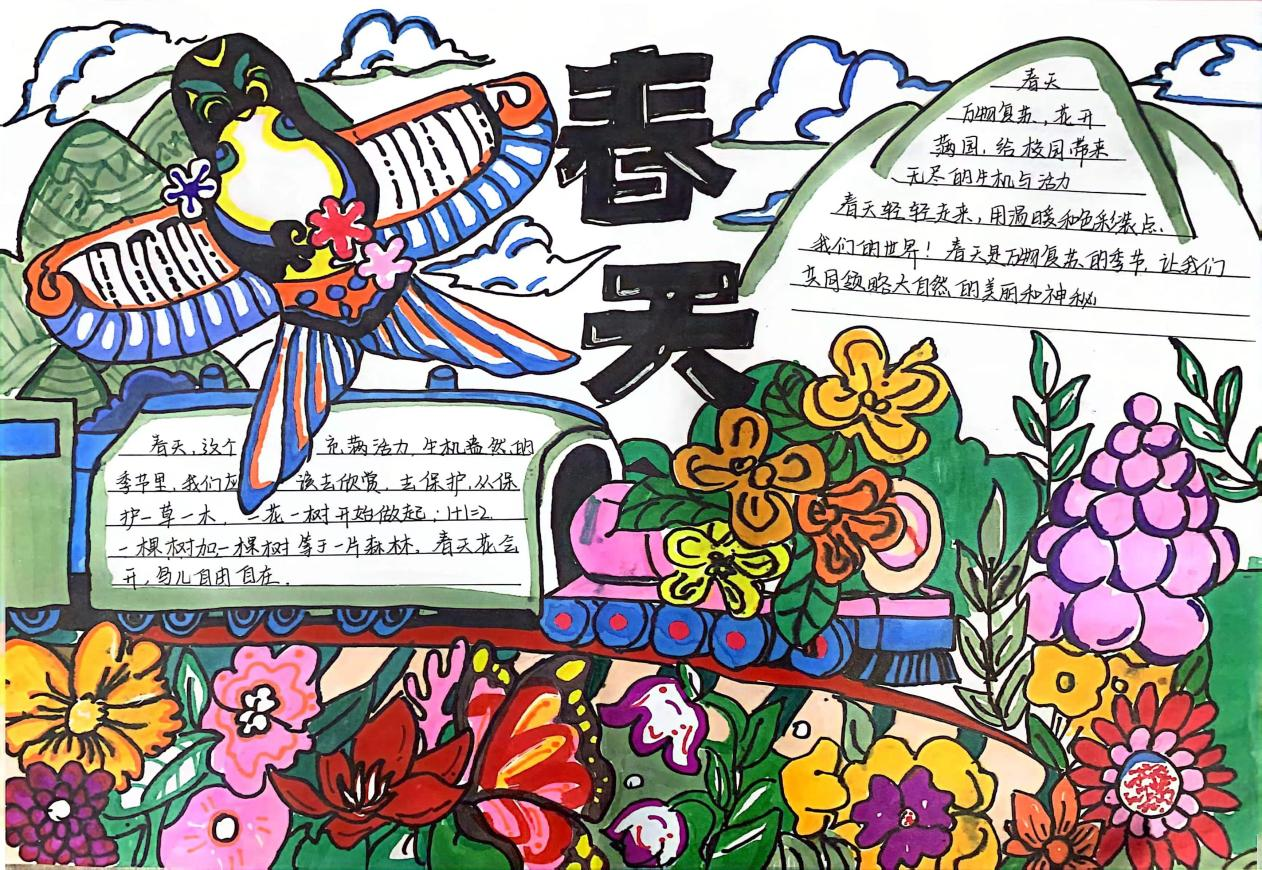 春天
春天
万物复苏，花开
满园，给校园带来
无尽的生机与活力
春天轻轻走来，用温暖和色彩装点
我们的世界！春天是万物复苏的季节，让我们
共同领略大自然的美丽和神秘
春天，这个充满活力，生机盎然的
季节里，我们应该去欣赏，去保护，从保
护一草一木，一花一树开始做起；1+1=2.
一棵树加一棵树等于一片森林。春天花会
开，鸟儿自由自在.